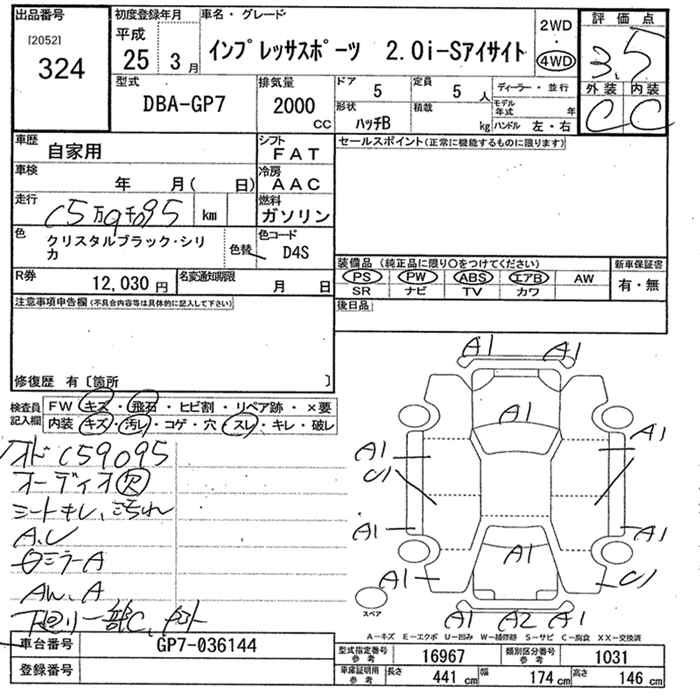 出品番号 初度登録年月 車名・グレード 2WD・4WD 評価点
[2052] 324 平成 25 3月 インプレッサスポーツ 2.0i-Sアイサイト 3.5
型式 排気量 ドア 5 定員 5人 ディーラー・並行 外装 内装
DBA-GP7 2000 CC 形状 ハッチB 積載 kg モデル年式 年 ハンドル 左・右 C C
車歴 自家用 シフト FAT セールスポイント(正常に機能するものに限ります)
車検 年 月( 日) 冷房 AAC
走行 km 燃料 ガソリン
色 クリスタルブラック・シリカ 色替 色コード D4S
装備品 (純正品に限り○をつけてください) 新車保証書
R券 12,030円 名変通知期限 月 日 PS PW ABS エアB AW 有・無
SR ナビ TV カワ
注意事項申告欄(不具合内容等は具体的に記入して下さい) 後日品
修復歴 有〔箇所 〕
検査員記入欄 FW キズ・飛石・ヒビ割・リペア跡・×要
内装 キズ・汚レ・コゲ・穴・スレ・キレ・破レ
オド C59095
オーディオ欠
シートキレ、汚れ
ミラーA
AW、A
下廻り一部C、
A1 A1
A1
A1 A1
C1
A1 A1
A1
A1 C1
スペア
A1 A2 A1
A-キズ E-エクボ U-凹み W-補修跡 S-サビ C-腐食 XX-交換済
車台番号 GP7-036144
型式指定番号参考 16967 類別区分番号参考 1031
登録番号 車庫証明用参考 長さ 441cm 幅 174cm 高さ 146cm